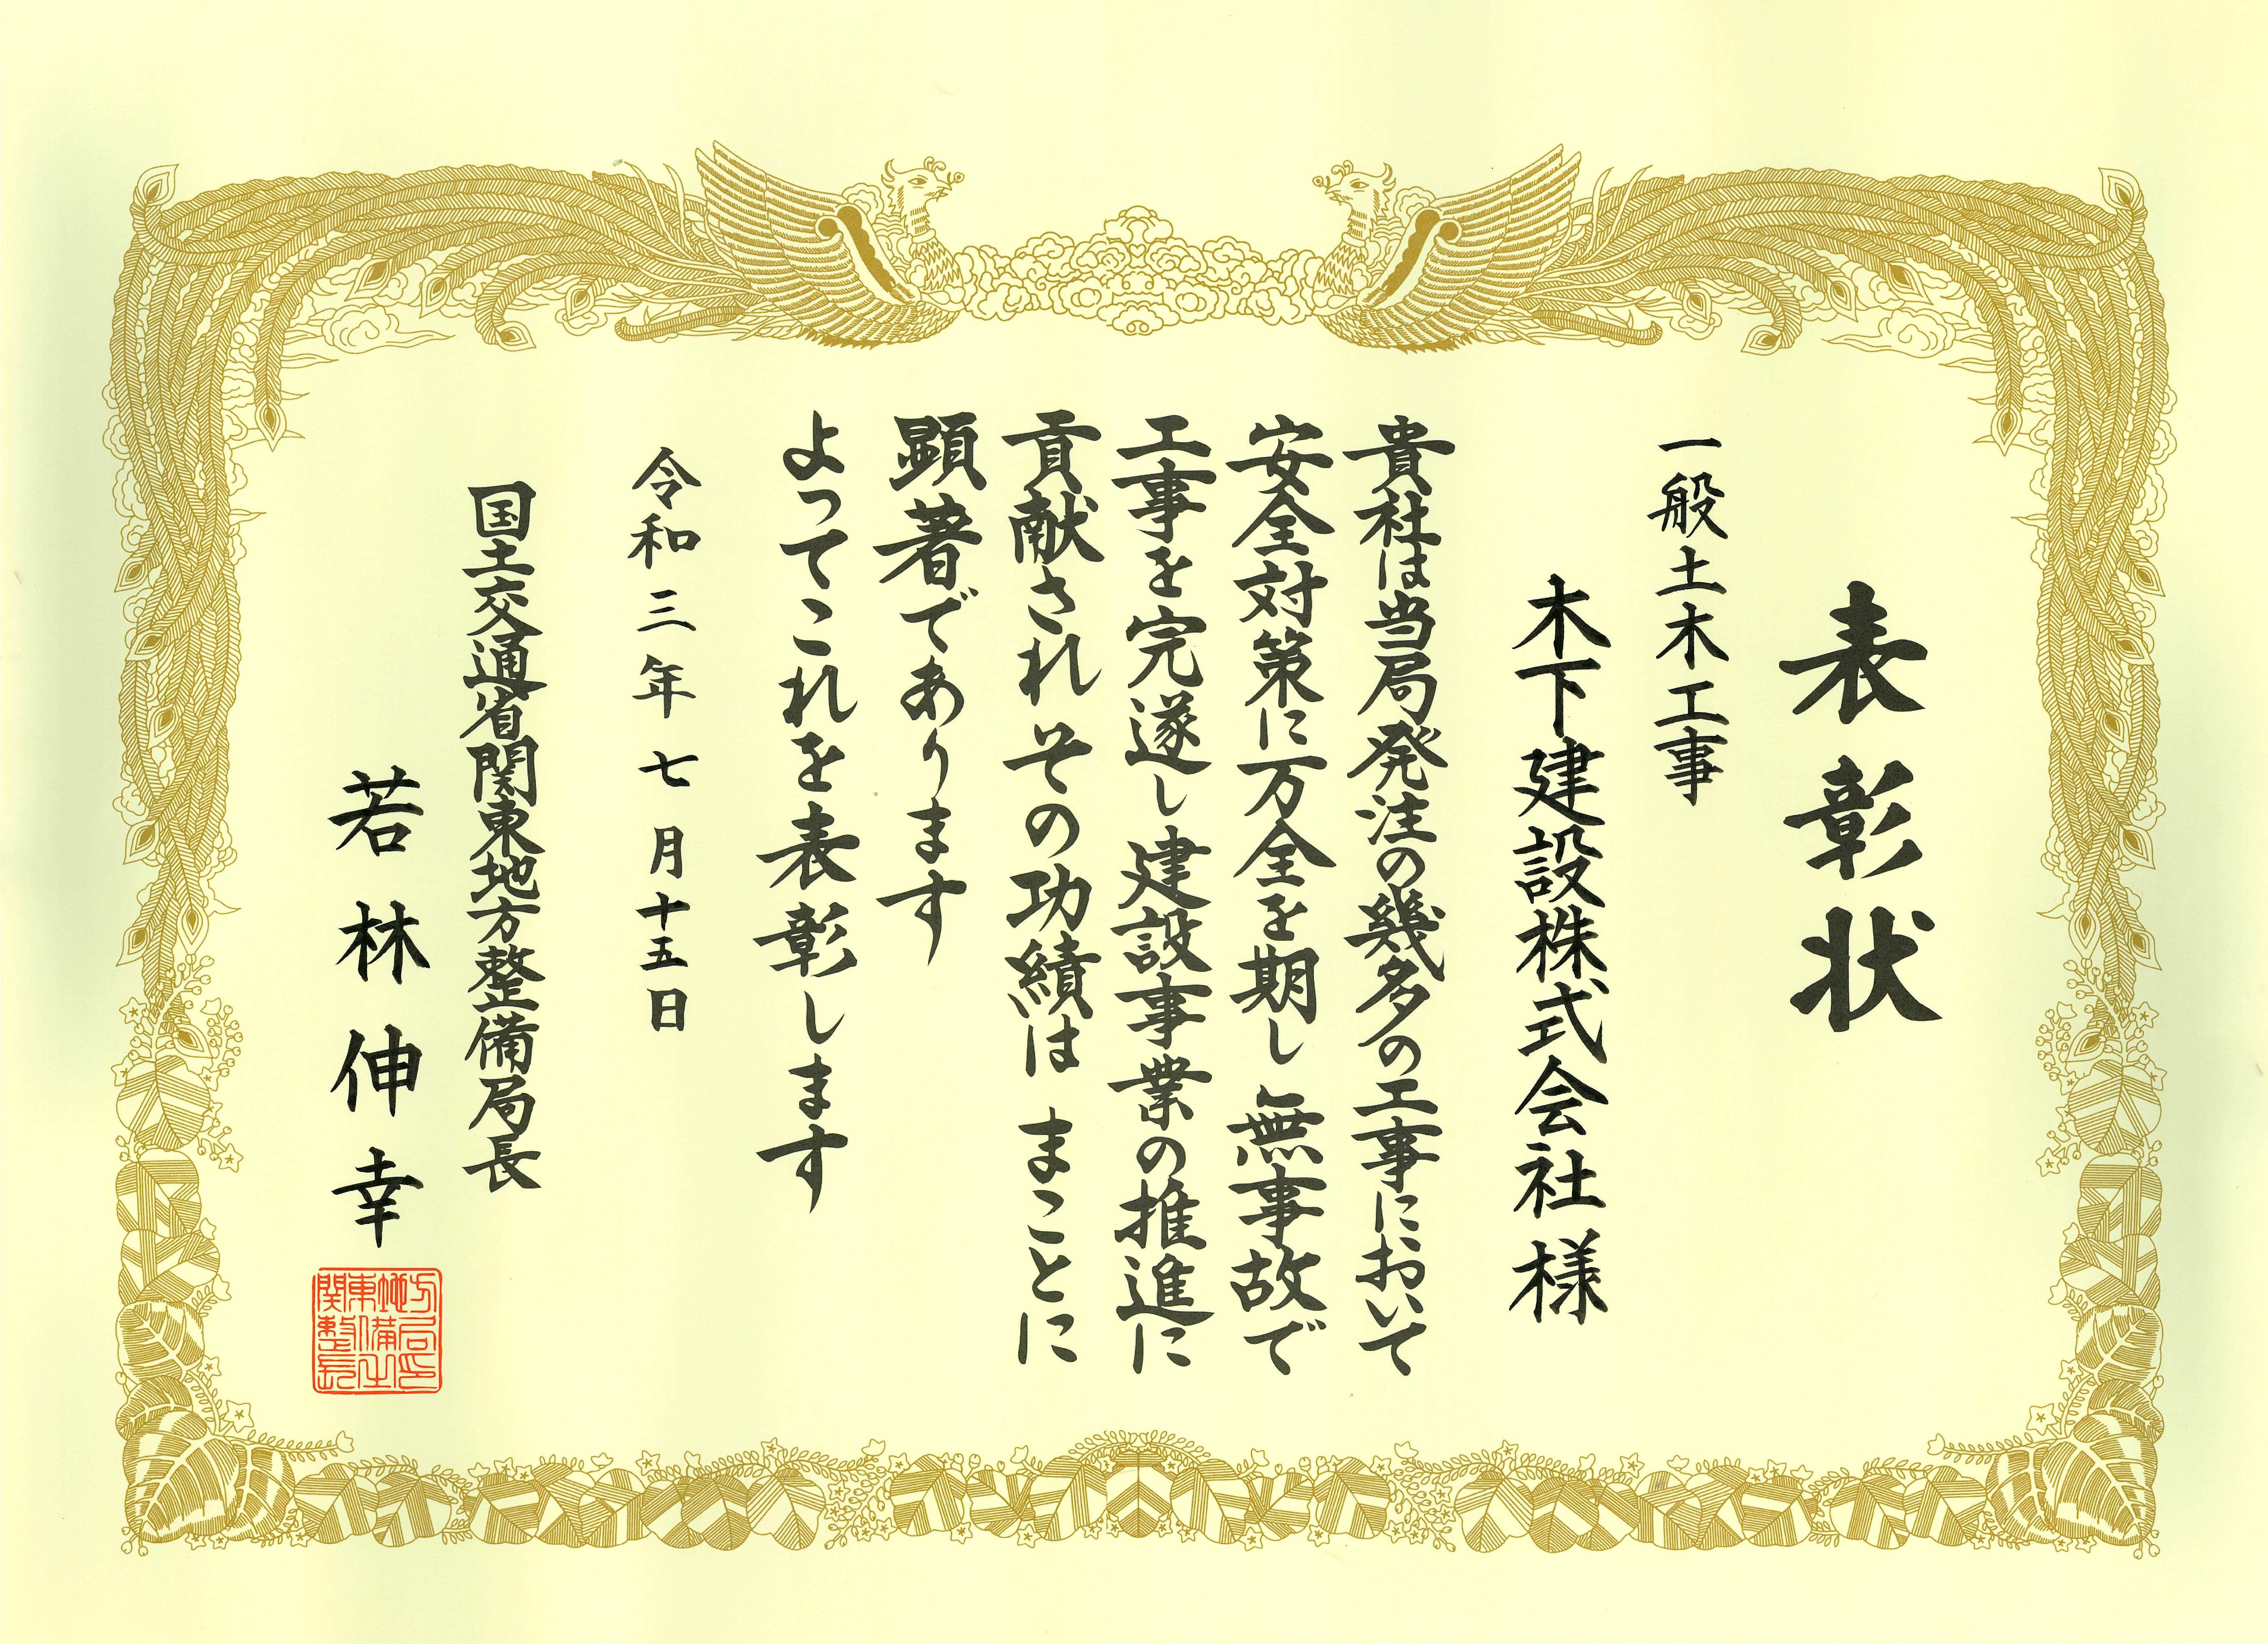 表彰状
一般土木工事
木下建設株式会社様
貴社は当局発注の幾多の工事において
安全対策に万全を期し 無事故で
工事を完遂し 建設事業の推進に
貢献され その功績は まことに
顕著であります
よってこれを表彰します
令和三年七月十五日
国土交通省関東地方整備局長
若林伸幸